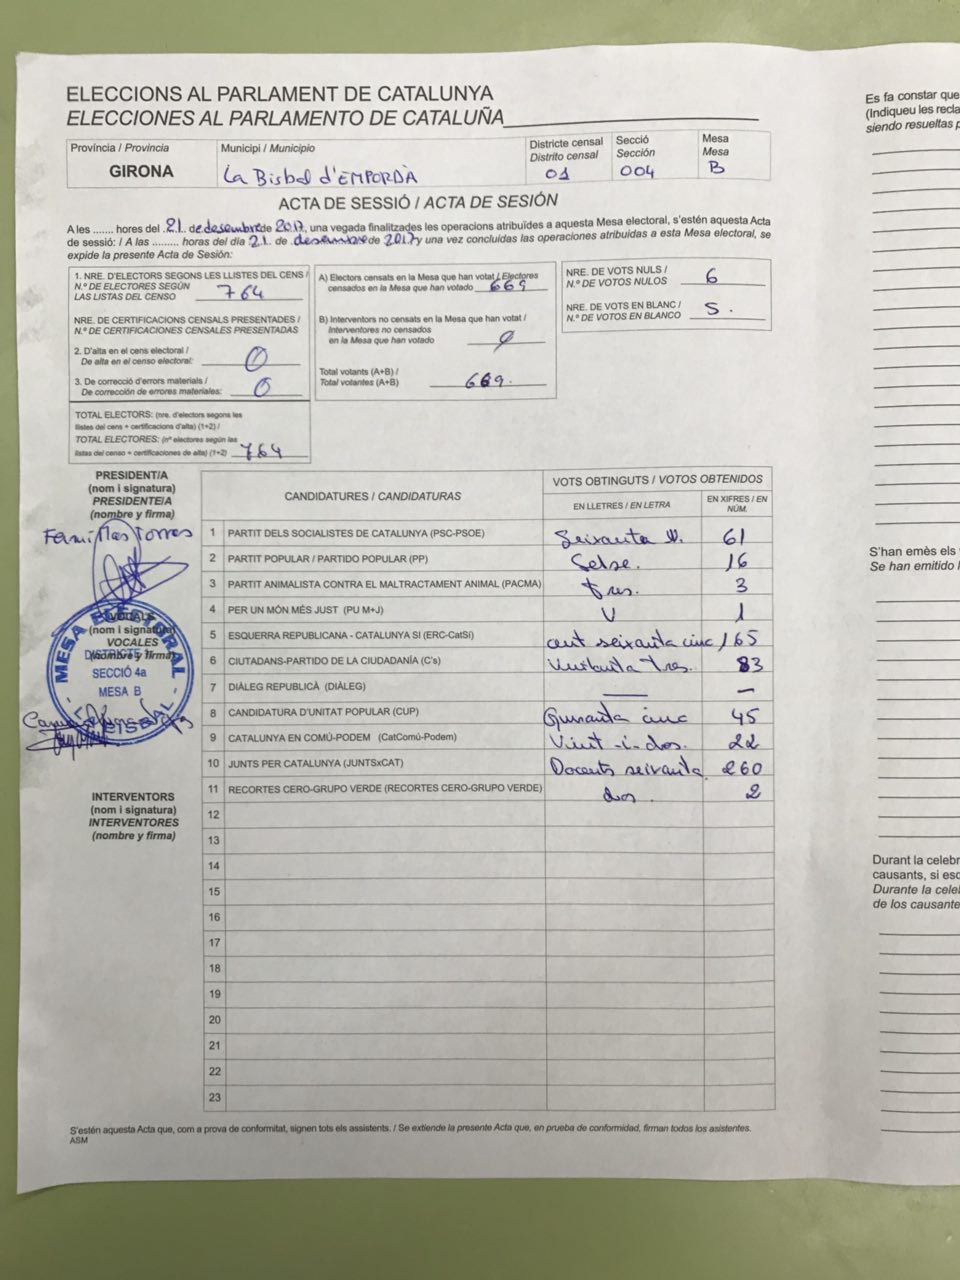 ELECCIONS AL PARLAMENT DE CATALUNYA
ELECCIONES AL PARLAMENTO DE CATALUÑA
Província / Provincia
GIRONA
Municipi / Municipio
La Bisbal d'EMPORDÀ
Districte censal
Distrito censal
01
Secció
Sección
004
Mesa
Mesa
B
ACTA DE SESSIÓ / ACTA DE SESIÓN
A les ....... hores del .21. de desembre de 2017, una vegada finalitzades les operacions atribuïdes a aquesta Mesa electoral, s'estén aquesta Acta
de sessió: / A las ......... horas del día 21. de .desembre de 2017 y una vez concluidas las operaciones atribuidas a esta Mesa electoral, se
expide la presente Acta de Sesión:
1. NRE. D'ELECTORS SEGONS LES LLISTES DEL CENS /
N.º DE ELECTORES SEGÚN
LAS LISTAS DEL CENSO 764
NRE. DE CERTIFICACIONS CENSALS PRESENTADES /
N.º DE CERTIFICACIONES CENSALES PRESENTADAS
2. D'alta en el cens electoral /
De alta en el censo electoral: 0
3. De correcció d'errors materials /
De corrección de errores materiales: 0
TOTAL ELECTORS: (nre. d'electors segons les
llistes del cens + certificacions d'alta) (1+2) /
TOTAL ELECTORES: (nº electores según las
listas del censo + certificaciones de alta) (1+2) 764
A) Electors censats en la Mesa que han votat / Electores
censados en la Mesa que han votado 669
B) Interventors no censats en la Mesa que han votat /
Interventores no censados
en la Mesa que han votado 0
Total votants (A+B) /
Total votantes (A+B) 669.
NRE. DE VOTS NULS /
N.º DE VOTOS NULOS 6
NRE. DE VOTS EN BLANC /
N.º DE VOTOS EN BLANCO 5.
PRESIDENT/A
(nom i signatura)
PRESIDENTE/A
(nombre y firma)
Torres
VOCALS
(nom i signatura)
VOCALES
(nombre y firma)
MESA ELECTORAL
DISTRICTE 1r
SECCIÓ 4a
MESA B
LA BISBAL
INTERVENTORS
(nom i signatura)
INTERVENTORES
(nombre y firma)
CANDIDATURES / CANDIDATURAS
VOTS OBTINGUTS / VOTOS OBTENIDOS
EN LLETRES / EN LETRA
EN XIFRES / EN NÚM.
1 PARTIT DELS SOCIALISTES DE CATALUNYA (PSC-PSOE) Seixanta U. 61
2 PARTIT POPULAR / PARTIDO POPULAR (PP) Setse. 16
3 PARTIT ANIMALISTA CONTRA EL MALTRACTAMENT ANIMAL (PACMA) tres. 3
4 PER UN MÓN MÉS JUST (PU M+J) U 1
5 ESQUERRA REPUBLICANA - CATALUNYA SI (ERC-CatSí) cent seixanta cinc 165
6 CIUTADANS-PARTIDO DE LA CIUDADANÍA (C's) Vuitanta tres. 83
7 DIÀLEG REPUBLICÀ (DIÀLEG) — —
8 CANDIDATURA D'UNITAT POPULAR (CUP) Quranta cinc 45
9 CATALUNYA EN COMÚ-PODEM (CatComú-Podem) Vint-i-dos. 22
10 JUNTS PER CATALUNYA (JUNTSxCAT) Docents seixanta 260
11 RECORTES CERO-GRUPO VERDE (RECORTES CERO-GRUPO VERDE) dos. 2
12
13
14
15
16
17
18
19
20
21
22
23
S'estén aquesta Acta que, com a prova de conformitat, signen tots els assistents. / Se extiende la presente Acta que, en prueba de conformidad, firman todos los asistentes.
ASM
Es fa constar que
(Indiqueu les recla
siendo resueltas p
S'han emès els
Se han emitido l
Durant la celebr
causants, si esc
Durante la celeb
de los causante